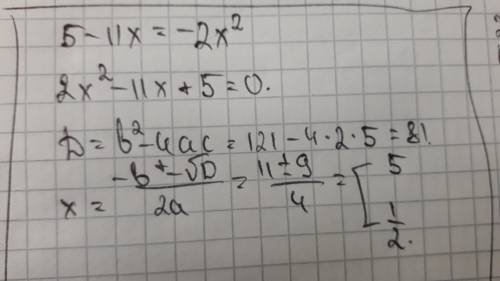 5 - 11x = -2x²
2x² - 11x + 5 = 0.
D = b² - 4ac = 121 - 4·2·5 = 81.
x = (-b ± √D)/2a = (11 ± 9)/4 = [5; 1/2.